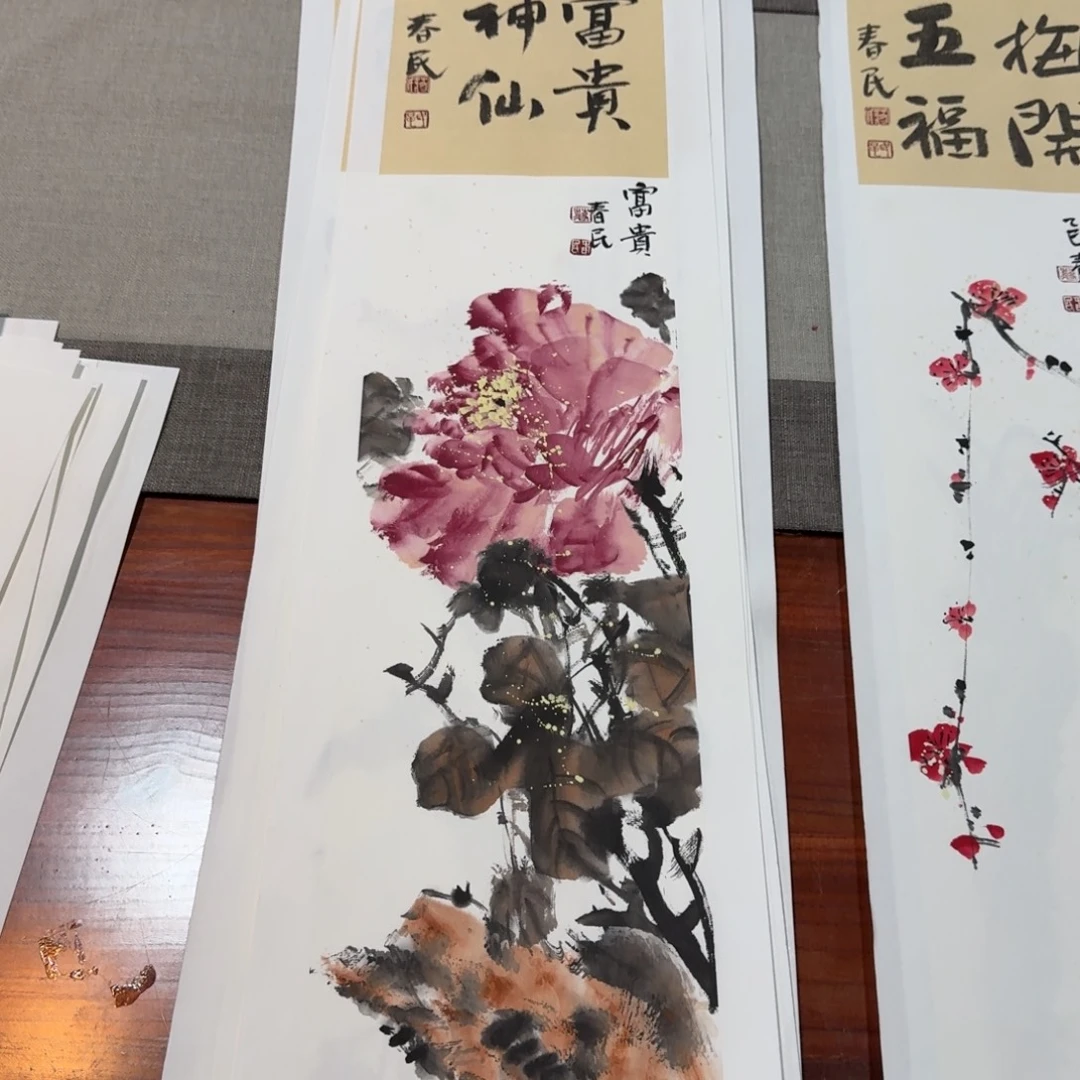 富貴
神仙
春民
富貴
春民
梅開
五福
春民